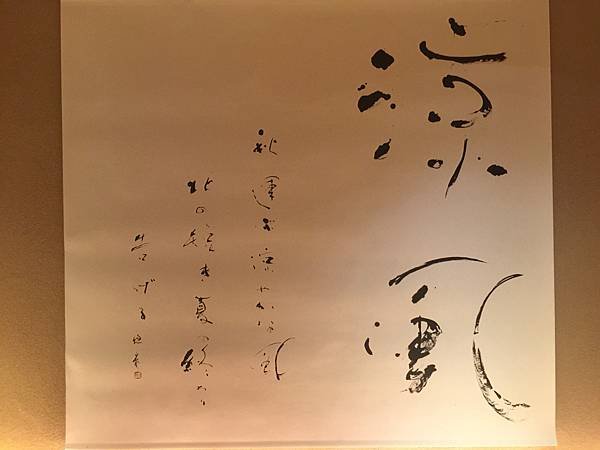 涼風
秋運ぶ涼やかな風
北の短き夏の終わり
告げる